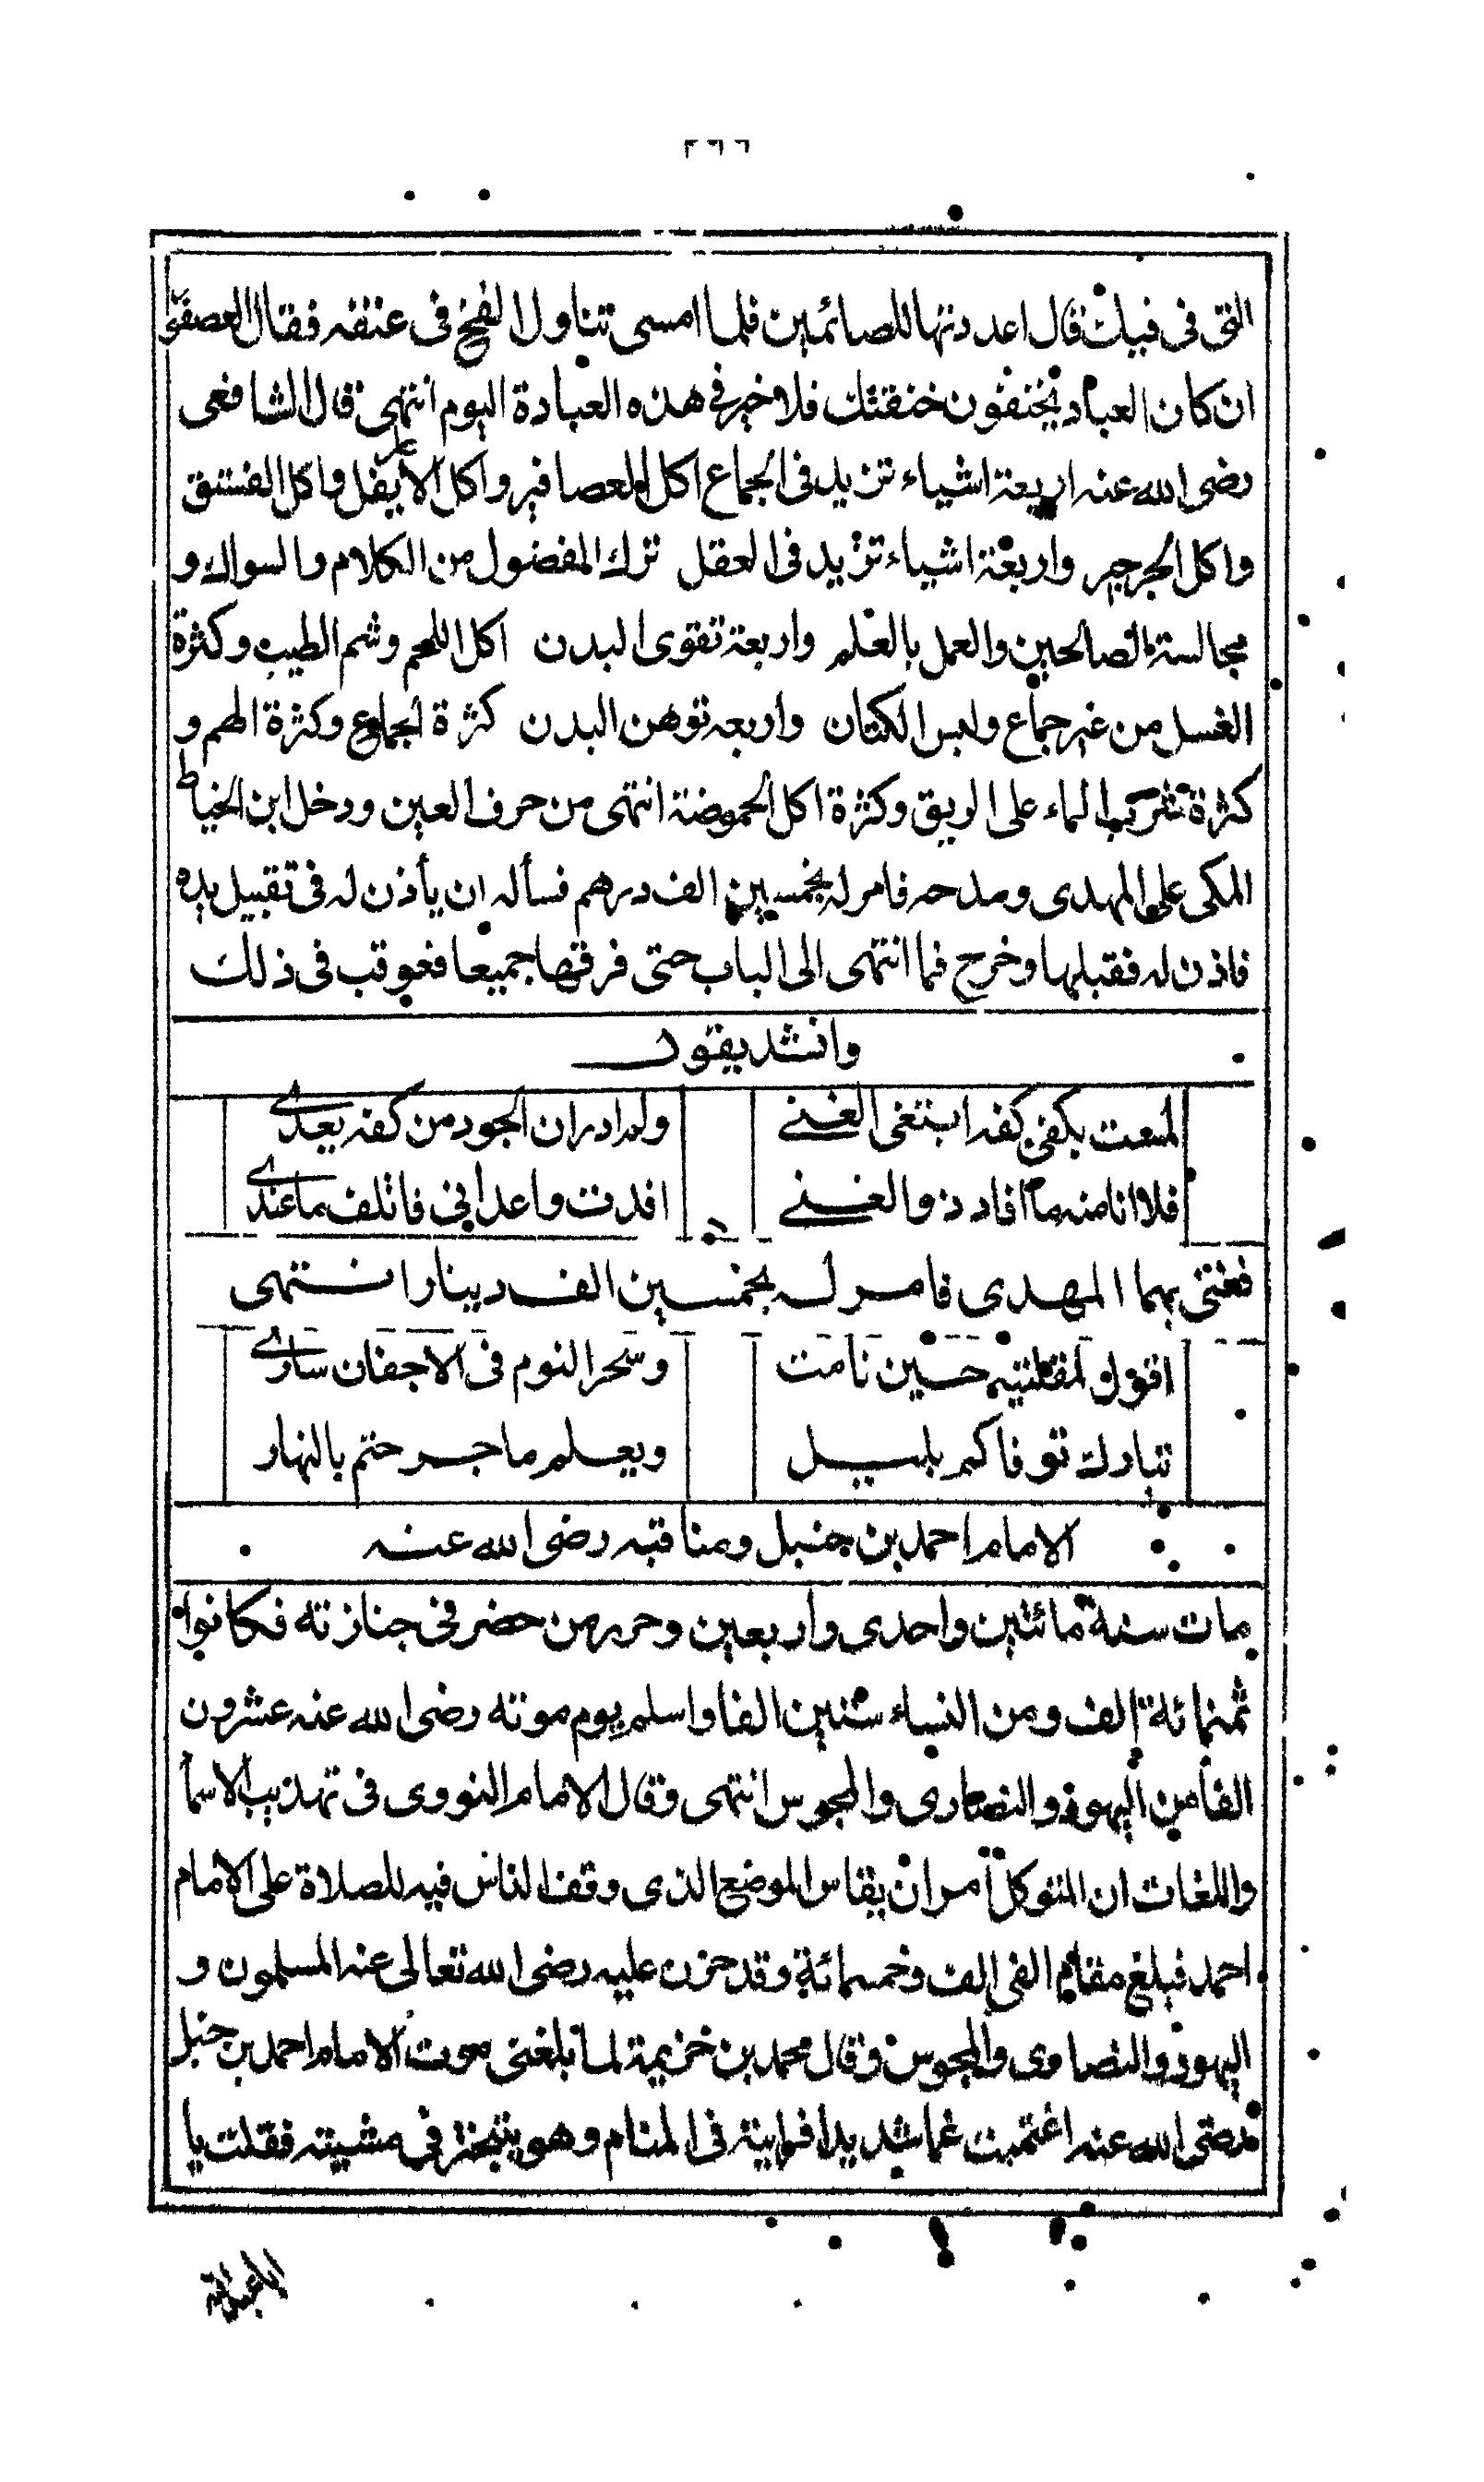 ٢٦٦
التى فى فيك قال اعددتها للصائمين فلما امسى تناول الفخ فى عنقه فقال العصفور
ان كان العباد يخنقون خنقتك فلا خير فى هذه العبادة اليوم انتهى قال الشافعى
رضى الله عنه اربعة اشياء تزيد فى الجماع اكل العصافير واكل الاطريفل واكل الفستق
واكل الجرجير واربعة اشياء تزيد فى العقل ترك الفضول من الكلام والسواك و
مجالسة الصالحين والعمل بالعلم واربعة تقوى البدن اكل اللحم وشم الطيب وكثرة
الغسل من غير جماع ولبس الكتان واربعه توهن البدن كثرة الجماع وكثرة الهم و
كثرة شرب الماء على الريق وكثرة اكل الحموضة انتهى من حرف العين ودخل ابن الخياط
المكى على المهدى ومدحه فامر له بخمسين الف درهم فسأله ان يأذن له فى تقبيل يده
فاذن له فقبلها وخرج فما انتهى الى الباب حتى فرقها جميعا فعوقب فى ذلك
وانشد يقول
لمست بكفى كفه ابتغى الغنى ولم ادر ان الجود من كفه يعدى
فلا انا منه ما افاد ذوو الغنى افدت واعدانى فاتلف ما عندى
فغنى بهما المهدى فامر له بخمسين الف دينار انتهى
اقول لمقلتيه حين نامت وسحر النوم فى الاجفان سارى
تبارك توفاكم بليل ويعلم ما جرحتم بالنهار
الامام احمد بن حنبل ومناقبه رضى الله عنه
مات سنة مائتين واحدى واربعين وحرر من حضر فى جنازته فكانوا
ثمنمائة الف ومن النساء ستين الفا واسلم يوم موته رضى الله عنه عشرون
الفا من اليهود والنصارى والمجوس انتهى وقال الامام النووى فى تهذيب الاسما
واللغات ان المتوكل امر ان يقاس الموضع الذى وقف الناس فيه للصلاة على الامام
احمد فبلغ مقام الفى الف وخمسمائة وقد حزن عليه رضى الله تعالى عنه المسلمون و
اليهود والنصارى والمجوس وقال محمد بن خزيمة لما بلغنى موت الامام احمد بن حنبل
رضى الله عنه اغتممت غما شديدا فرايته فى المنام وهو يتبختر فى مشيته فقلت يا